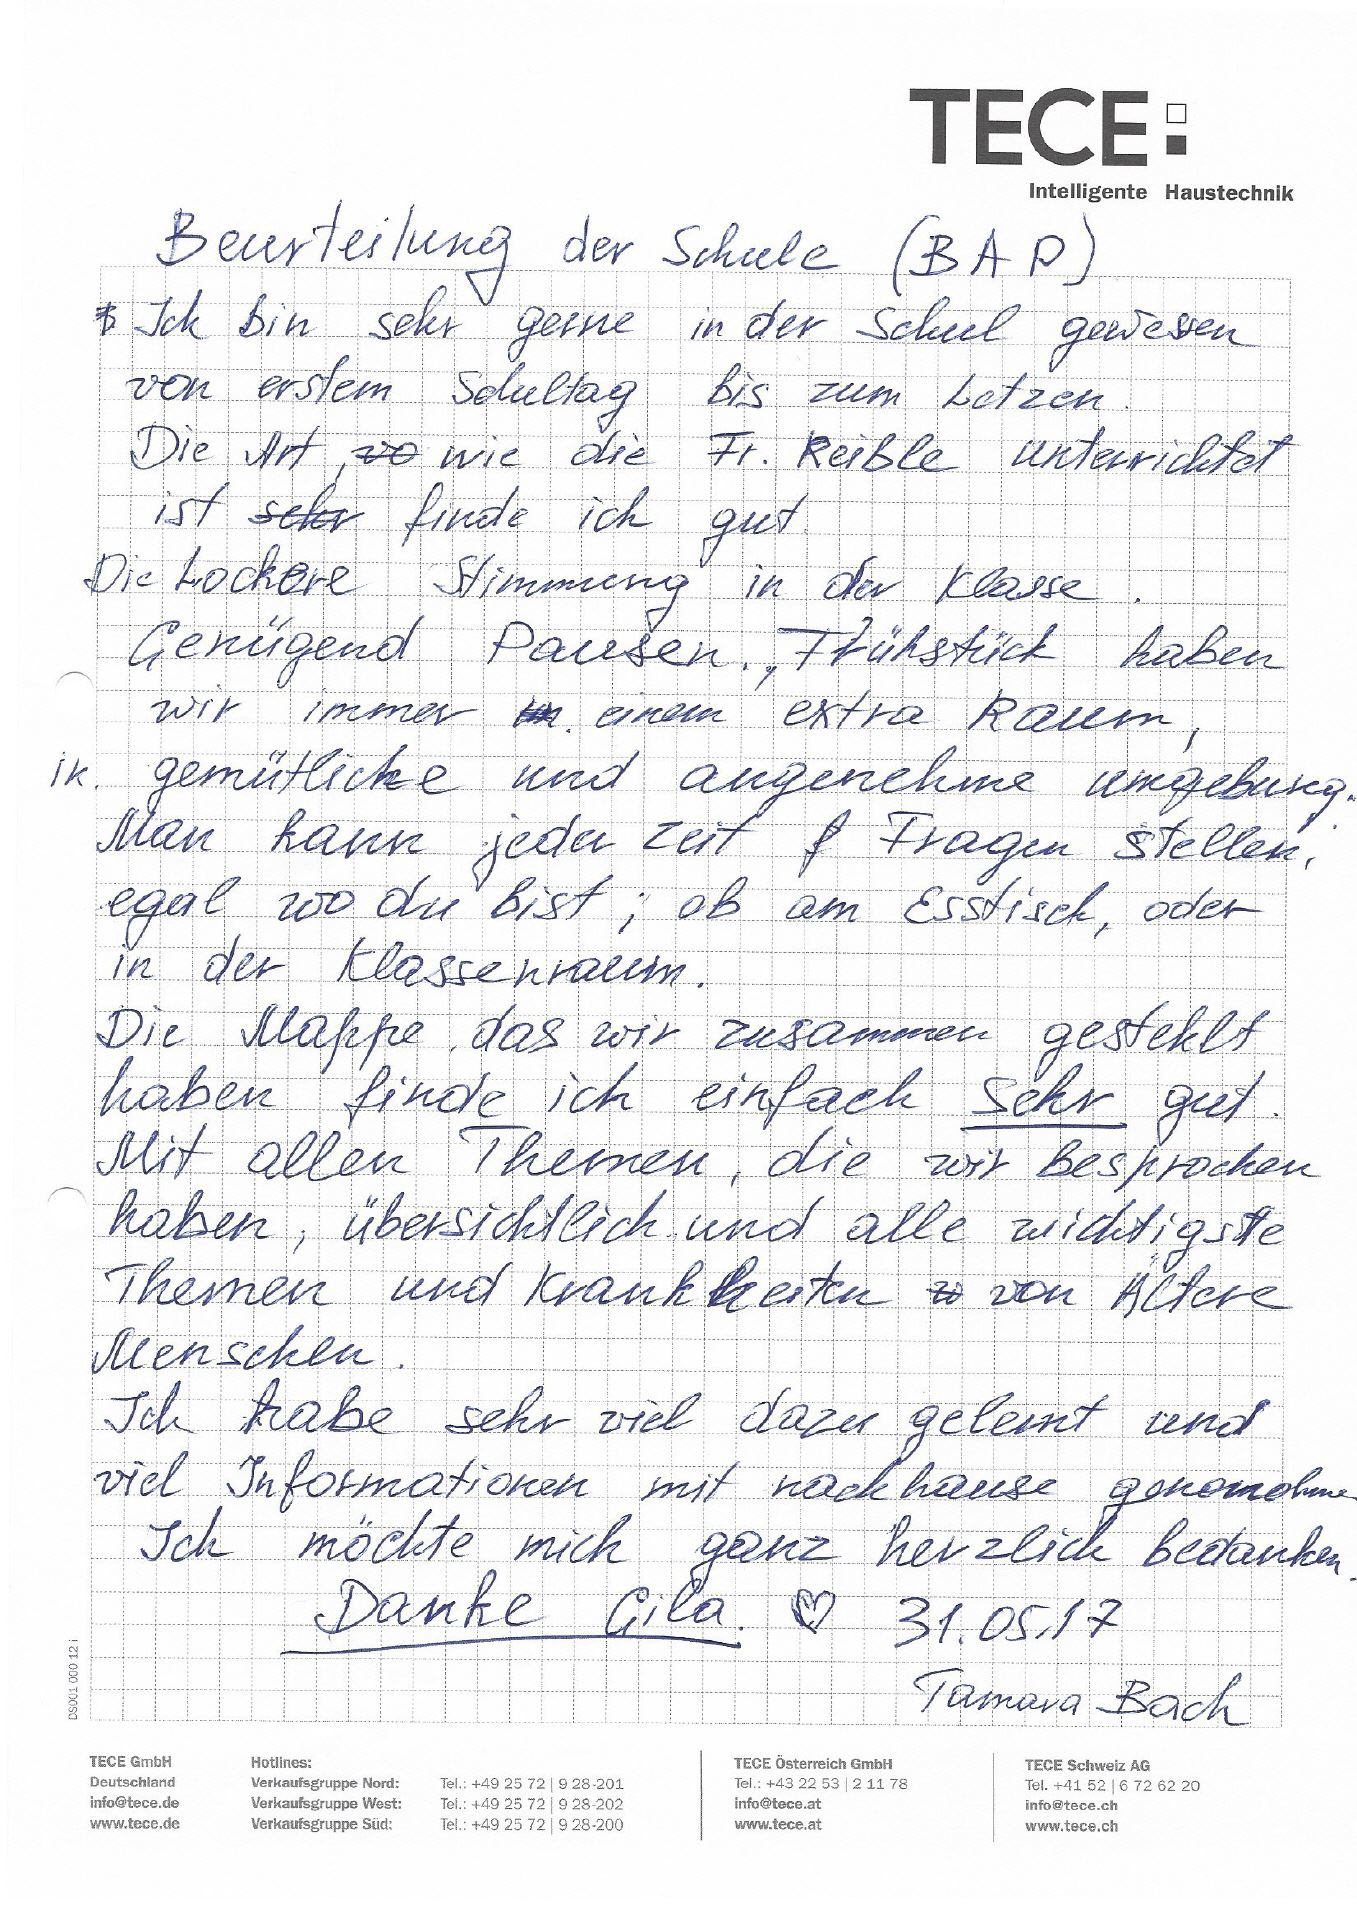 TECE
Intelligente Haustechnik
Beurteilung der Schule (BAP)
Ich bin sehr gerne in der Schul gewessen
von erstem Schultag bis zum Letzen.
Die Art, wo wie die Fr. Reible unterrichtet
ist sehr finde ich gut.
Die Lockere Stimmung in der Klasse.
Genügend Pausen., Frühstück haben
wir immer in einem extra Raum,
in. gemütliche und angenehme umgebung.
Man kann jeder zeit f Fragen stellen,
egal wo du bist; ob am Esstisch, oder
in der Klassenraum.
Die Mappe, das wir zusammen gestehlt
haben finde ich einfach sehr gut.
Mit allen Themen, die wir besprochen
haben, übersichtlich und alle wichtigste
Themen und Krankheiten von Ältere
Menschen.
Ich habe sehr viel dazu gelernt und
viel Informationen mit nachhause genomohmen
Ich möchte mich ganz herzlich bedanken.
Danke Gila. ♡ 31.05.17
Tamara Bach
DS001 000 12 i
TECE GmbH
Deutschland
info@tece.de
www.tece.de
Hotlines:
Verkaufsgruppe Nord: Tel.: +49 25 72 | 9 28-201
Verkaufsgruppe West: Tel.: +49 25 72 | 9 28-202
Verkaufsgruppe Süd: Tel.: +49 25 72 | 9 28-200
TECE Österreich GmbH
Tel.: +43 22 53 | 2 11 78
info@tece.at
www.tece.at
TECE Schweiz AG
Tel. +41 52 | 6 72 62 20
info@tece.ch
www.tece.ch